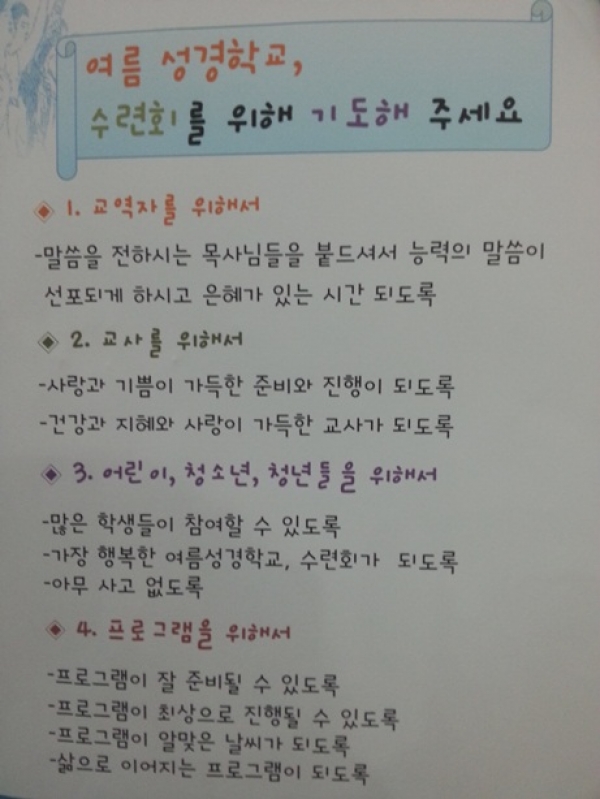 여름 성경학교,
수련회를 위해 기도해 주세요
1. 교역자를 위해서
-말씀을 전하시는 목사님들을 붙드셔서 능력의 말씀이
선포되게 하시고 은혜가 있는 시간 되도록
2. 교사를 위해서
-사랑과 기쁨이 가득한 준비와 진행이 되도록
-건강과 지혜와 사랑이 가득한 교사가 되도록
3. 어린이, 청소년, 청년들을 위해서
-많은 학생들이 참여할 수 있도록
-가장 행복한 여름성경학교, 수련회가 되도록
-아무 사고 없도록
4. 프로그램을 위해서
-프로그램이 잘 준비될 수 있도록
-프로그램이 최상으로 진행될 수 있도록
-프로그램이 알맞은 날씨가 되도록
-삶으로 이어지는 프로그램이 되도록